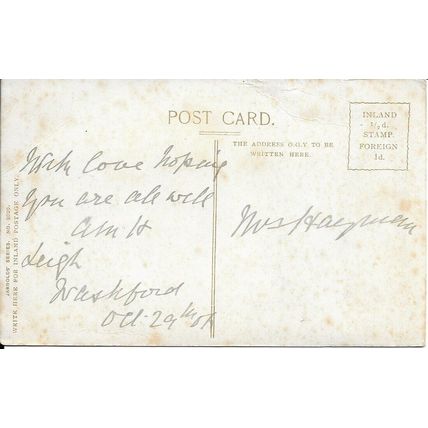 POST CARD.
THE ADDRESS O.O.Y. TO BE
WRITTEN HERE.
INLAND
½d.
STAMP.
FOREIGN
1d.
JARROLDS' SERIES. NO.
WRITE HERE FOR INLAND POSTAGE ONLY.
With love hoping
you are all well
AMH
Leigh
Washford
Oct. 29th
Mrs Hayman